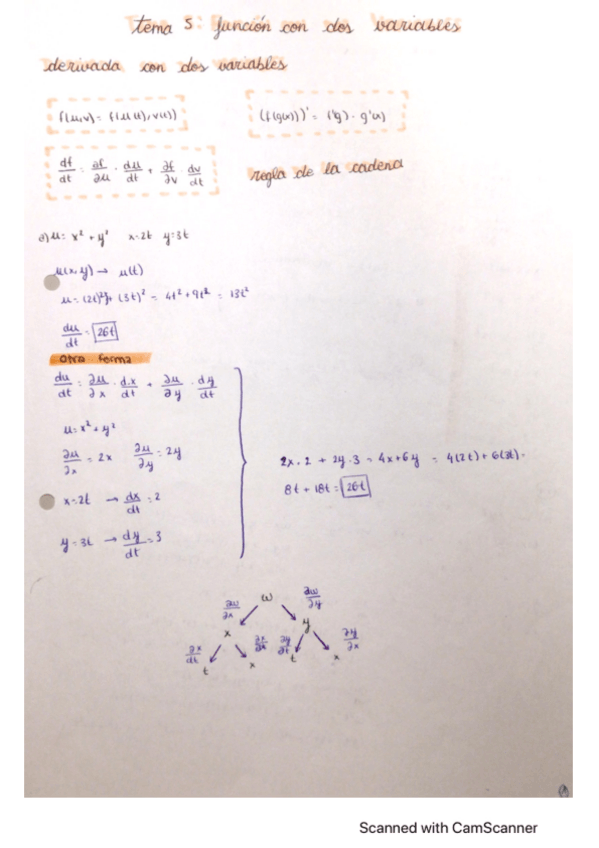 tema 5: función con dos variables
derivada con dos variables
f(u,v) = f(u(t), v(t))
(f(g(x)))' = f'(g) · g'(x)
df/dt = ∂f/∂u · du/dt + ∂f/∂v · dv/dt
regla de la cadena
u = x² + y² x=2t y=3t
u(x,y) → u(t)
u = (2t)² + (3t)² = 4t² + 9t² = 13t²
du/dt = 26t
otra forma
du/dt = ∂u/∂x · dx/dt + ∂u/∂y · dy/dt
u = x² + y²
∂u/∂x = 2x ∂u/∂y = 2y
x=2t → dx/dt = 2
y = 3t → dy/dt = 3
2x · 2 + 2y · 3 = 4x + 6y = 4(2t) + 6(3t) =
8t + 18t = 26t
∂w/∂x w ∂w/∂y
x y
∂x/∂t ∂y/∂t ∂y/∂x
t x t x
Scanned with CamScanner